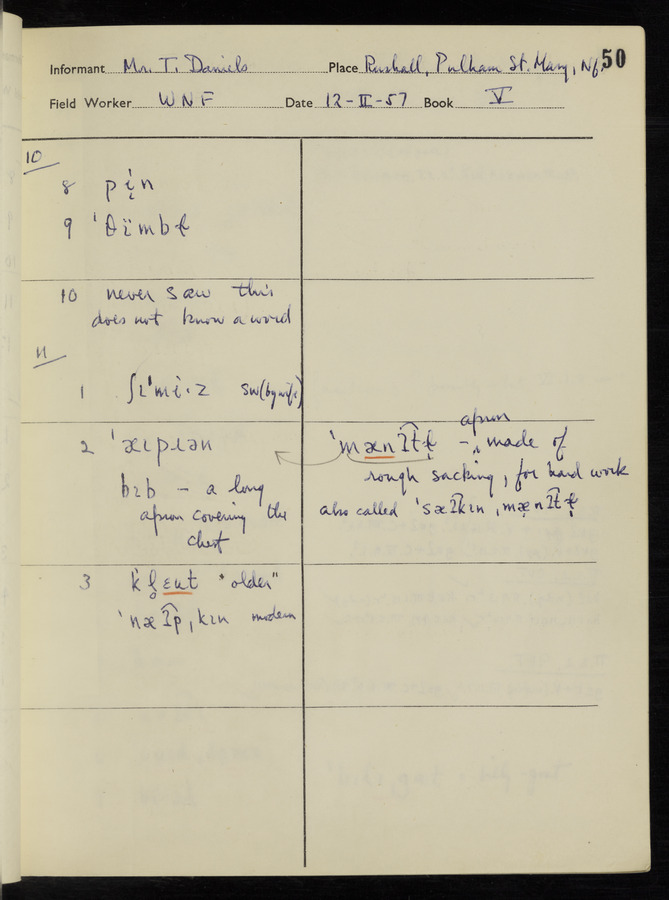 50
Informant Mr. T. Daniels Place Rushall, Pulham St. Mary, Nf.
Field Worker WNF Date 12-II-57 Book V
10
8 pi̜n
9 ˈθïmbɫ
10 never saw this
does not know a word
11
1 ʃɪˈmi·z sw(by wife)
2 ˈæɪpɹən
bɪb – a long
apron covering the
chest
ˈmænʔtɫ – apron made of
rough sacking, for hard work
also called ˈsæʔkɪn ˌmænʔtɫ
3 "older"
ˈnæʔpˌkɪn modern